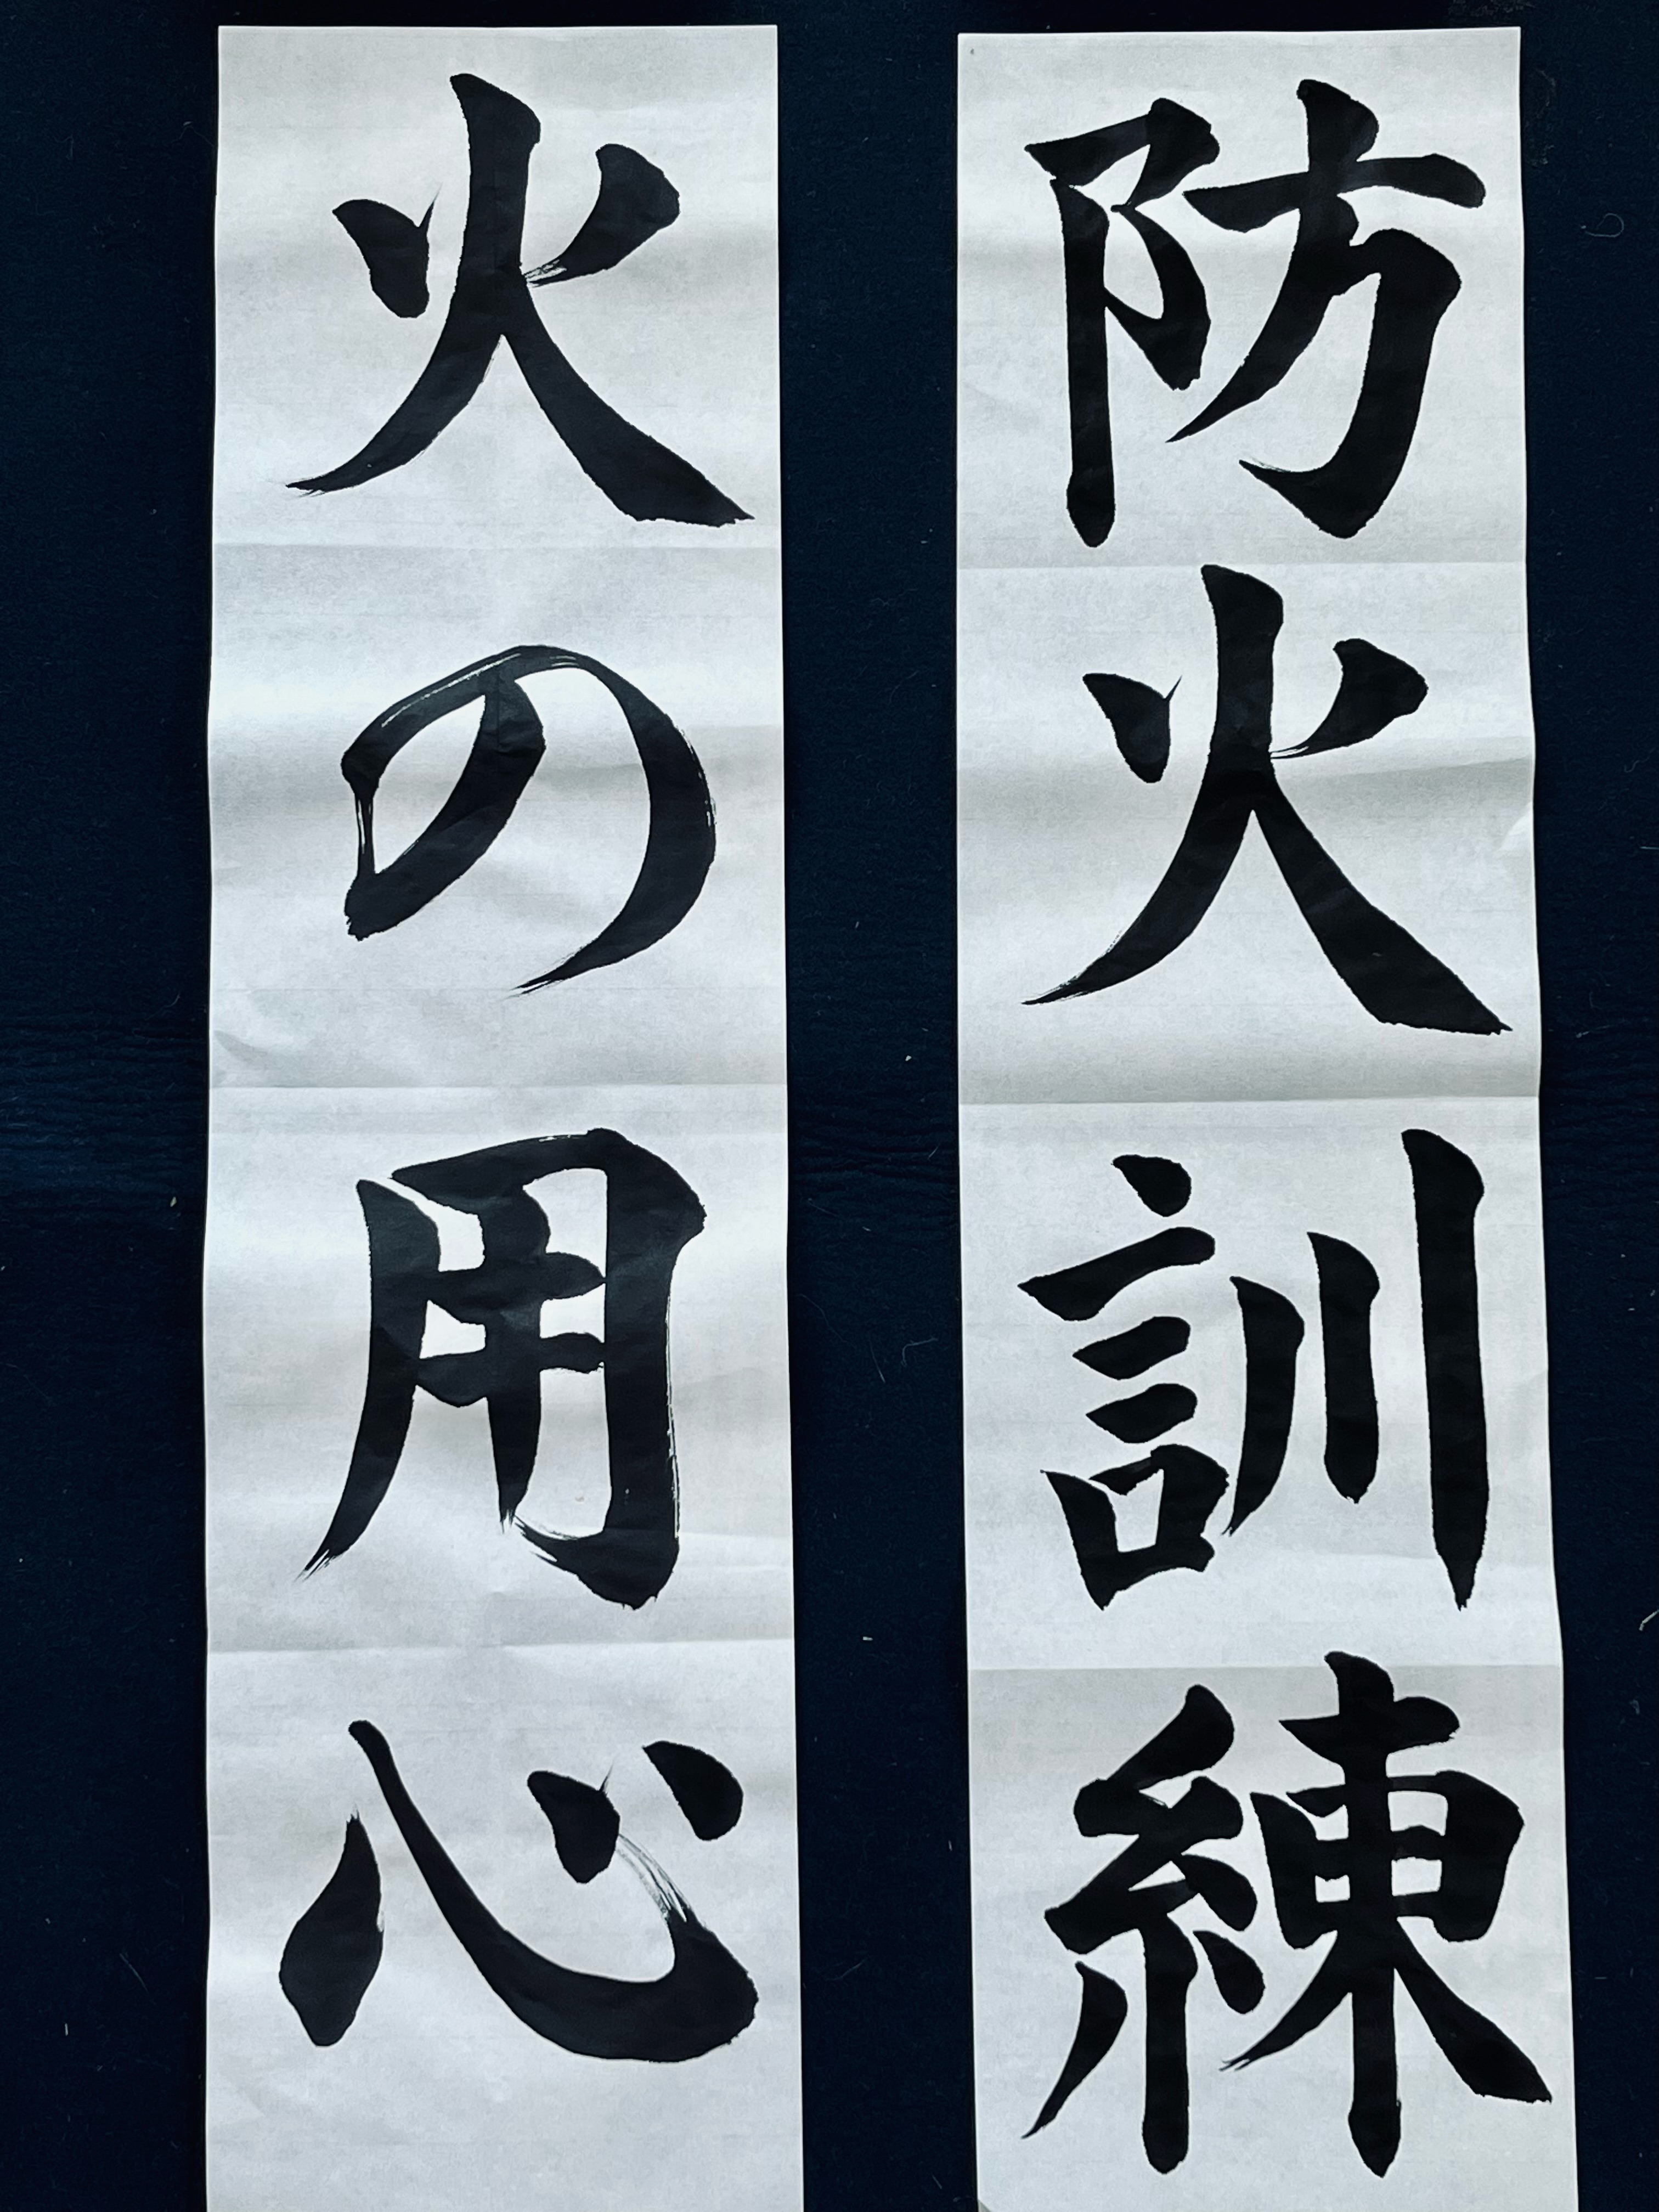 防火訓練
火の用心